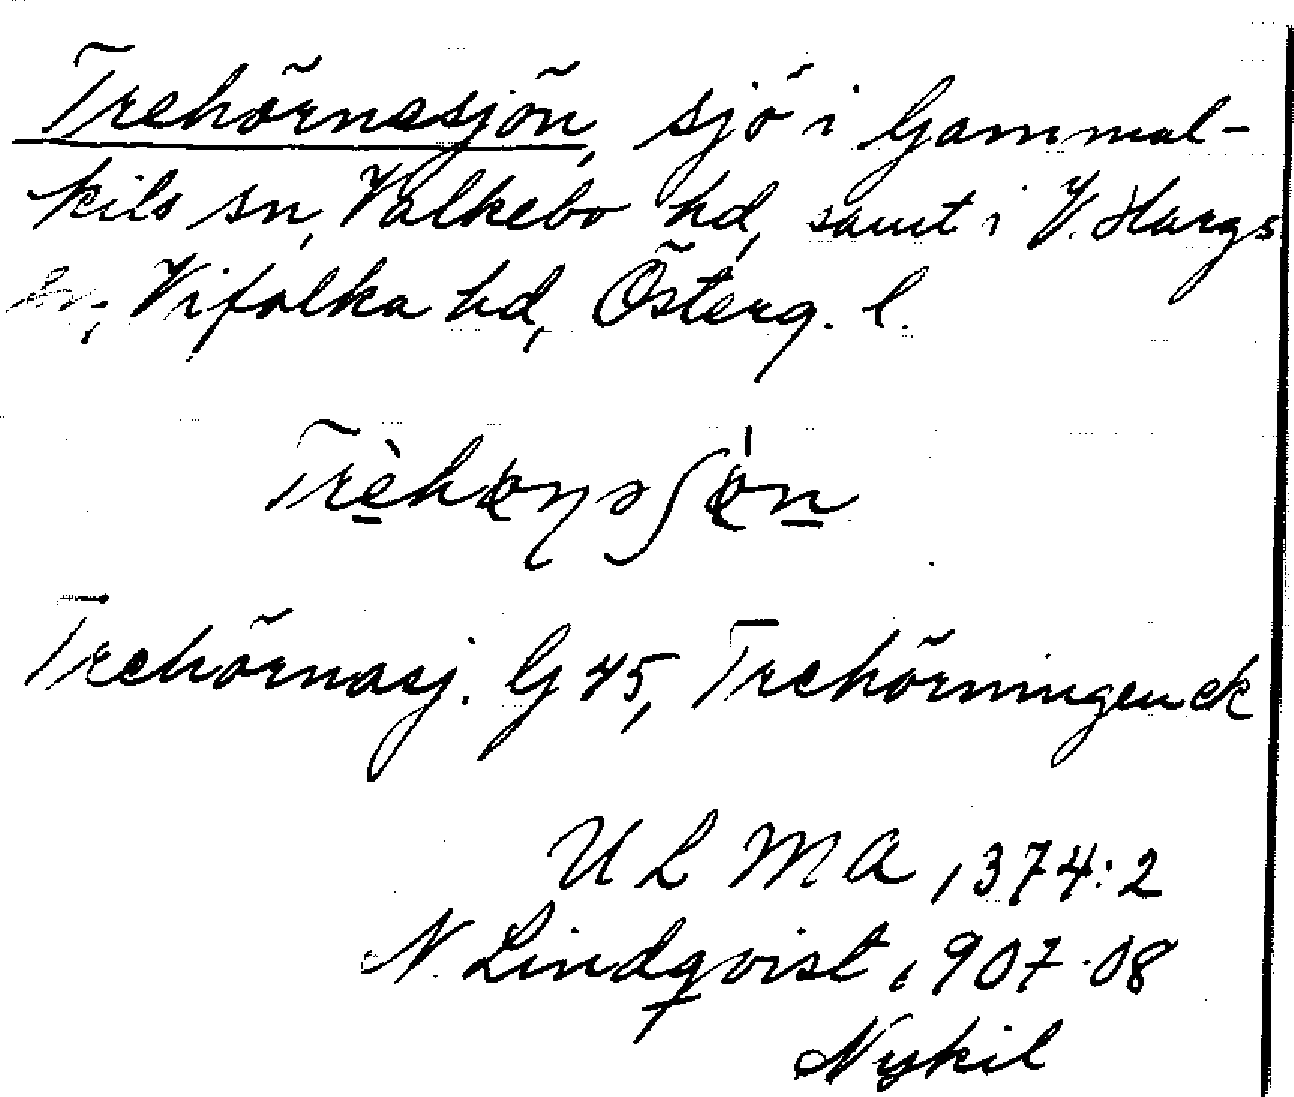 Trehörnasjön, sjö i Gammal-
kils sn, Valkebo hd, samt i V. Hargs
sn, Vifolka hd, Österg. l.
Trehörnasj. G 45, Trehörningen ek
ULMA 1374:2
N. Lindqvist 1907-08
Nykil